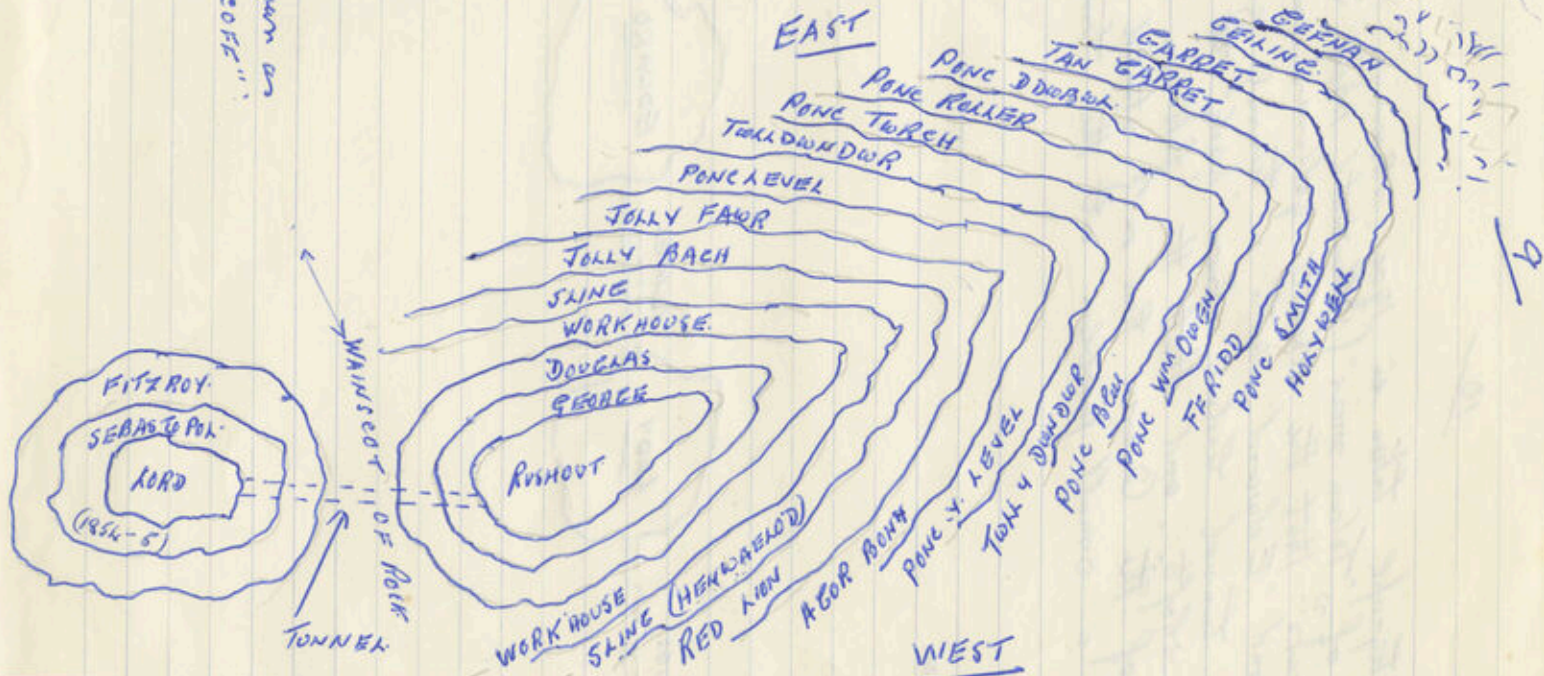 COFF".
EAST
CEFNAN
CEILINC.
GARRET
TAN GARRET
PONC DDWBWL
PONC ROLLER
PONC TWRCH
TWLLDWNDWR
PONC LEVEL
JOLLY FAWR
JOLLY BACH
SLINC
WORKHOUSE.
DOUGLAS
GEORGE
RUSHOUT
FITZROY.
SEBASTOPOL.
LORD
(1854-5)
WAINSCOT OF ROCK
TUNNEL
WORKHOUSE
SLINC (HENWAELOD)
RED LION
AGOR BONY
PONC.Y. LEVEL
TWLL Y DWNDWR
PONC
PONC WM OWEN
FFRIDD
PONC SMITH
HOLYWELL
WEST
9